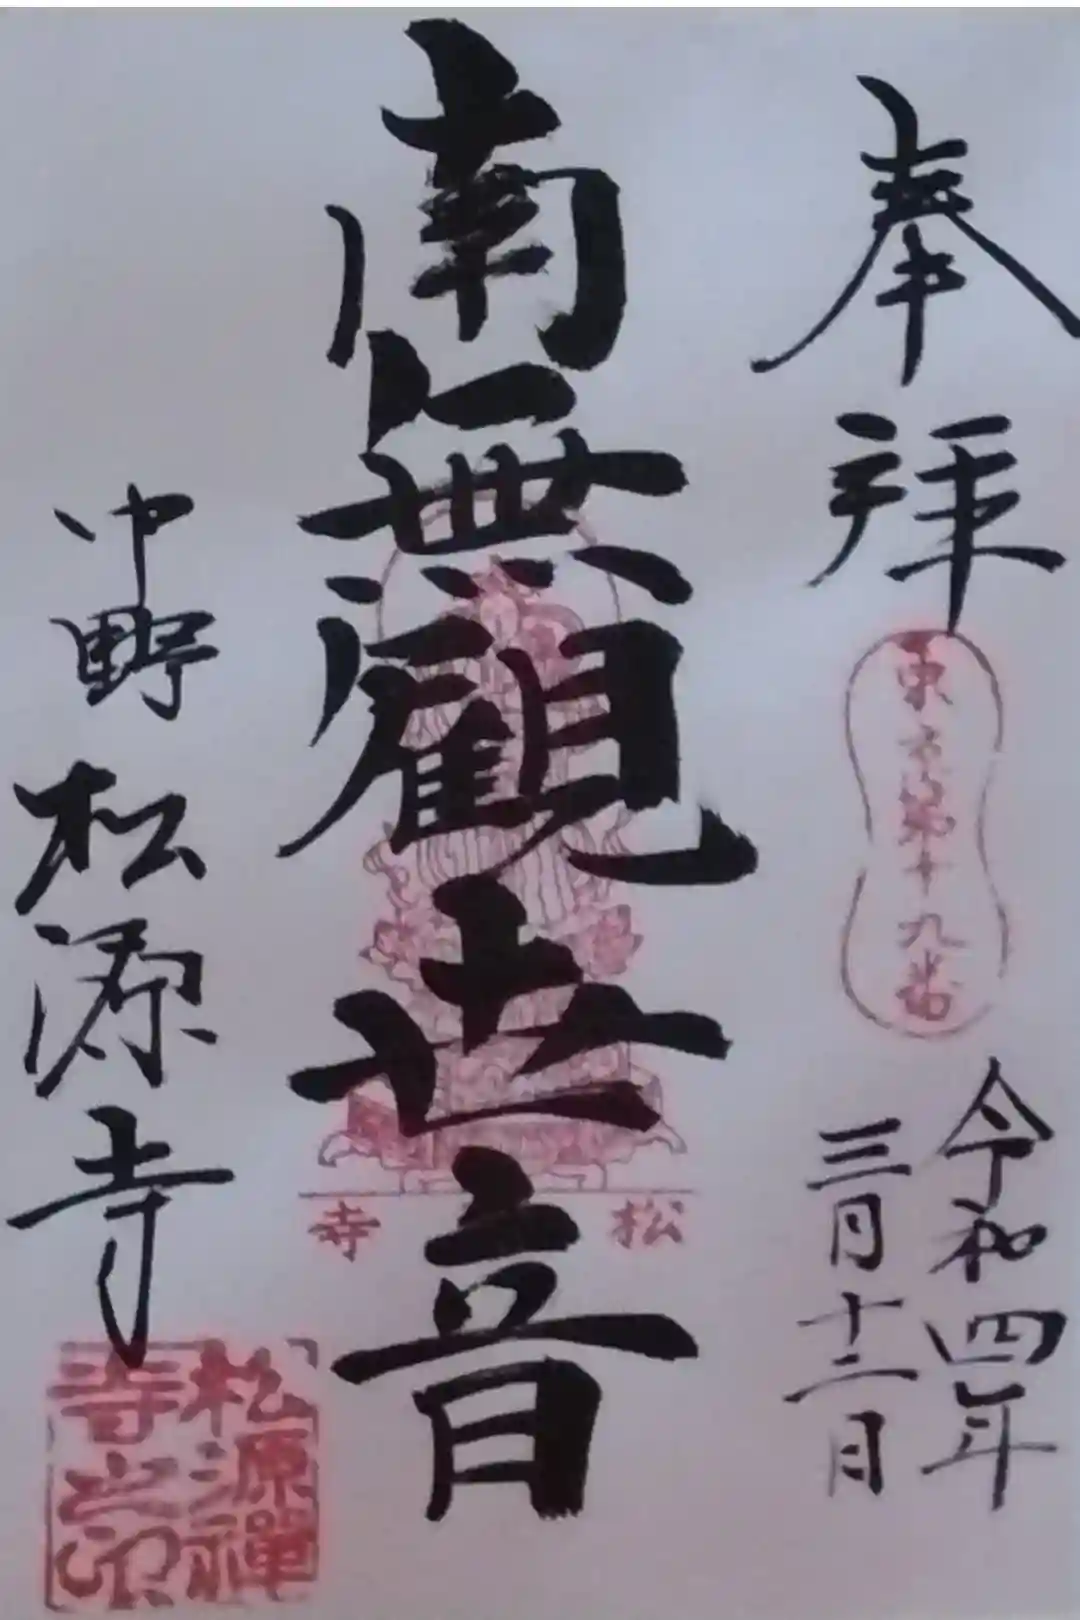 奉拝
東京第十九番
令和四年
三月十二日
南無觀世音
松
寺
中野
松源寺
松源禪
寺之印